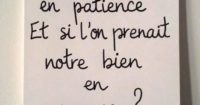 en patience
Et si l'on prenait
notre bien
en
?